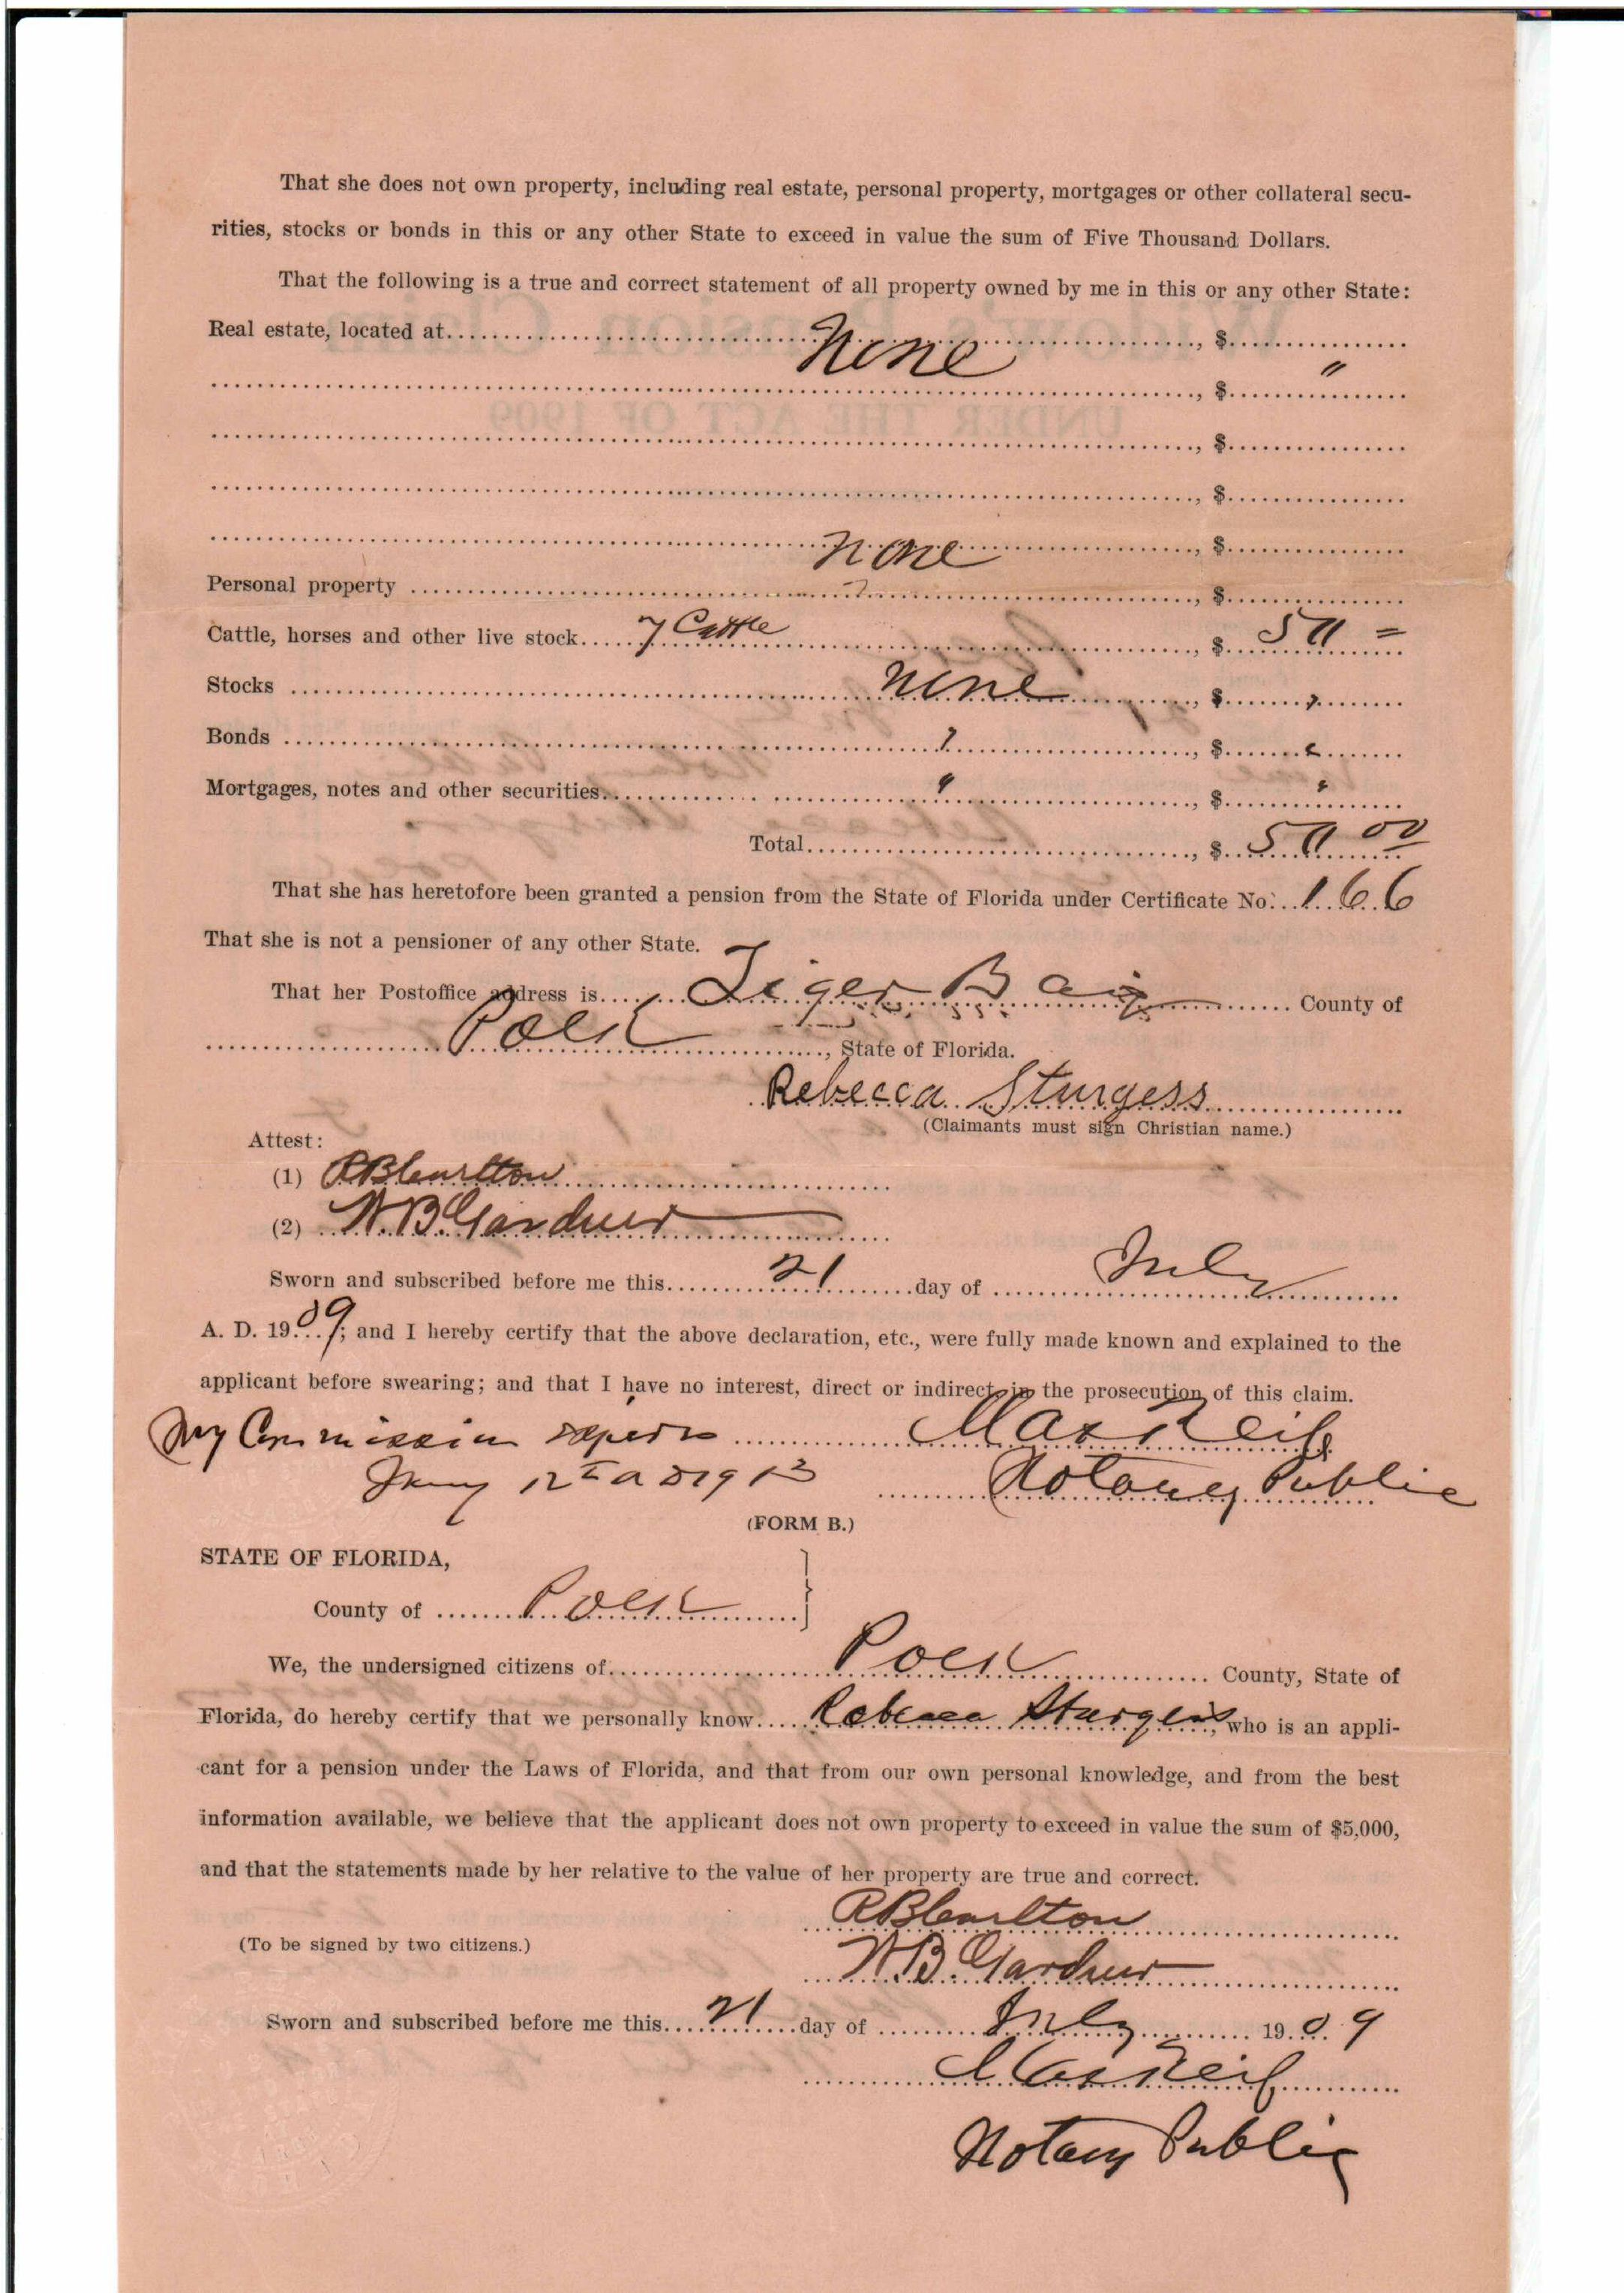 That she does not own property, including real estate, personal property, mortgages or other collateral secu-
rities, stocks or bonds in this or any other State to exceed in value the sum of Five Thousand Dollars.
That the following is a true and correct statement of all property owned by me in this or any other State:
Real estate, located at None, $
, $ "
, $
, $
none , $
Personal property , $
Cattle, horses and other live stock 7 Cattle , $
Stocks None , $ "
Bonds " , $ "
Mortgages, notes and other securities " , $ "
Total , $ 00
That she has heretofore been granted a pension from the State of Florida under Certificate No. 166
That she is not a pensioner of any other State.
That her Postoffice address is Tiger Bay County of
Polk , State of Florida.
Rebecca Sturgess
(Claimants must sign Christian name.)
Attest:
(1) R B Carlton
(2) W. B. Gardner
Sworn and subscribed before me this 21 day of July
A. D. 1909; and I hereby certify that the above declaration, etc., were fully made known and explained to the
applicant before swearing; and that I have no interest, direct or indirect, in the prosecution of this claim.
My Commission expires Max Reif
12th A D 1913 Notary Public
(FORM B.)
STATE OF FLORIDA,
County of Polk
We, the undersigned citizens of Polk County, State of
Florida, do hereby certify that we personally know Rebecca Sturgess, who is an appli-
cant for a pension under the Laws of Florida, and that from our own personal knowledge, and from the best
information available, we believe that the applicant does not own property to exceed in value the sum of $5,000,
and that the statements made by her relative to the value of her property are true and correct.
R B Carlton
(To be signed by two citizens.)
W. B. Gardner
Sworn and subscribed before me this 21 day of July 1909
Max Reif
Notary Public